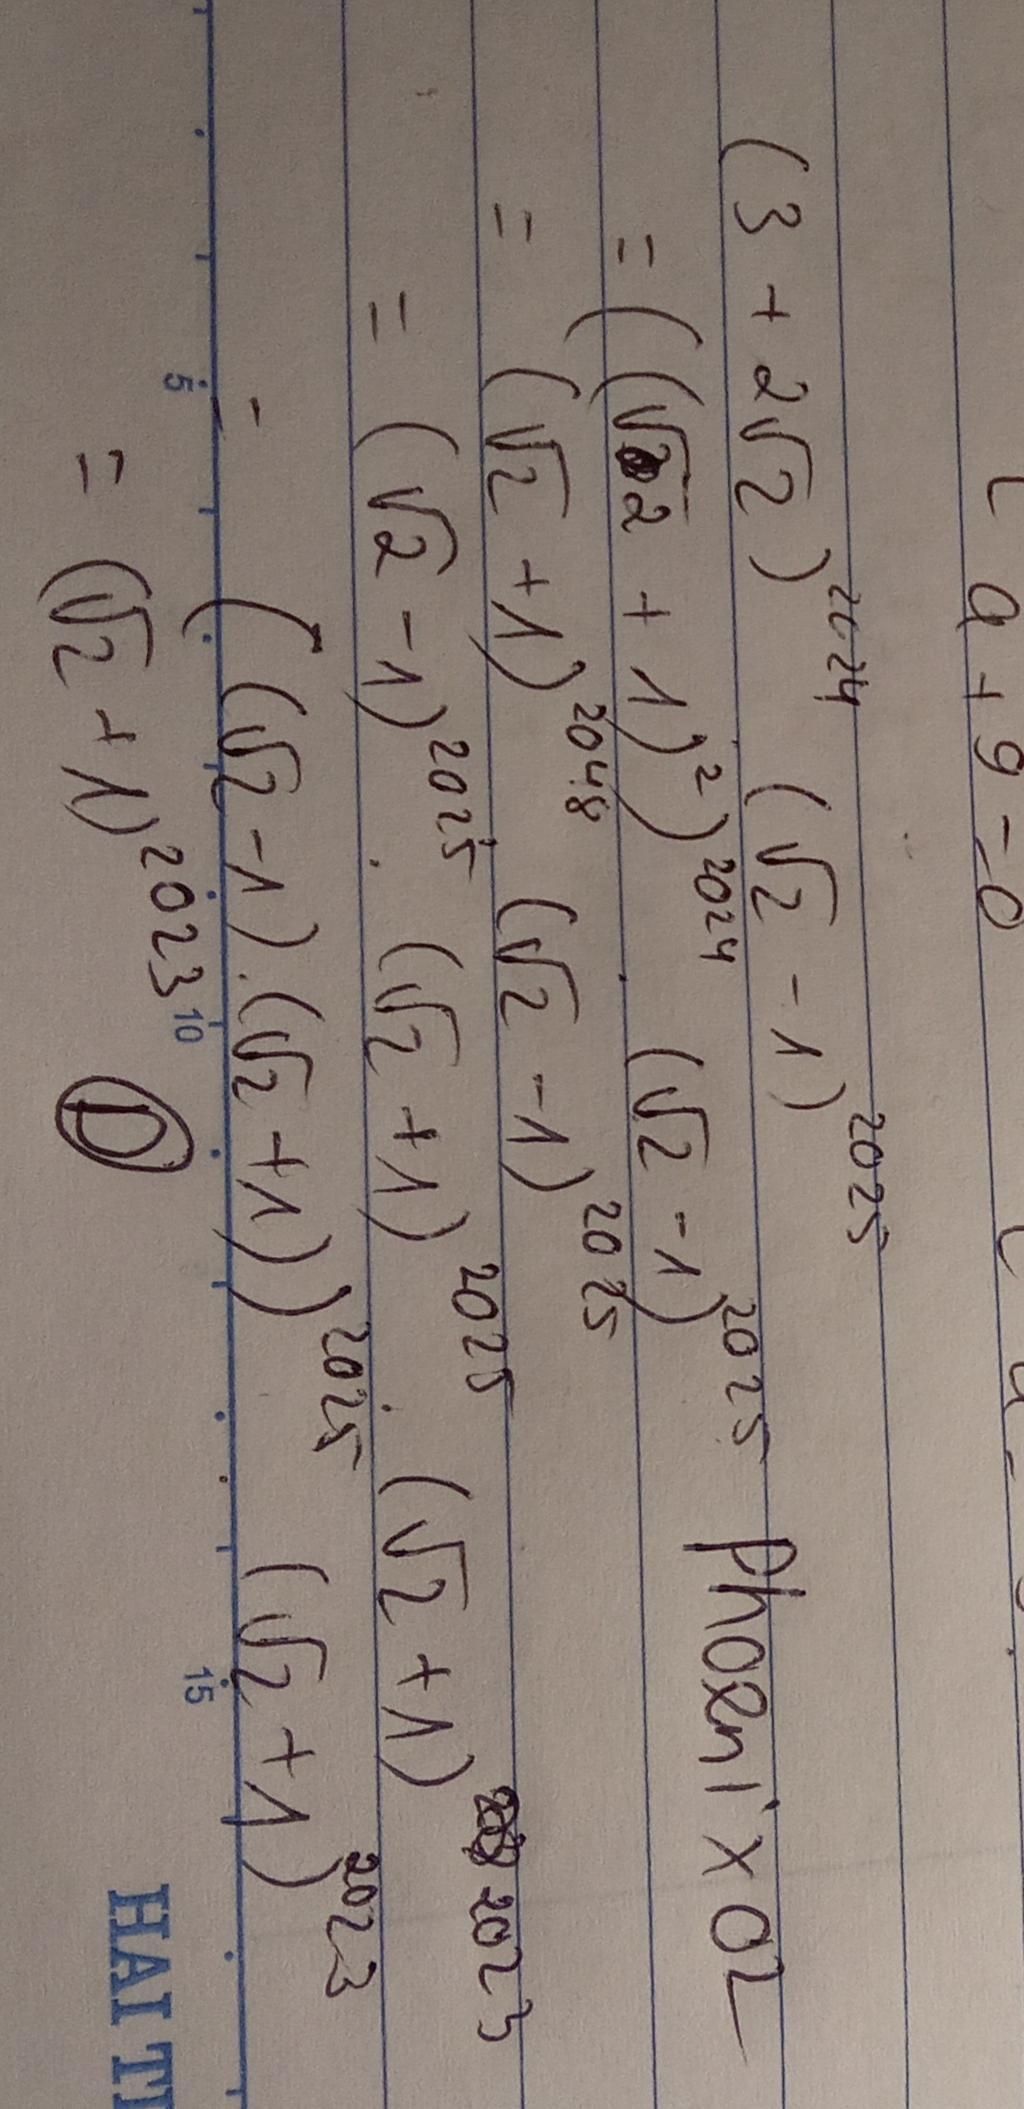 a + 9 = 0
(3 + 2√2)^2024 (√2 - 1)^2025
= ((√2 + 1)^2)^2024 . (√2 - 1)^2025 Phoenix 02
= (√2 + 1)^2048 (√2 - 1)^2025
= (√2 - 1)^2025 . (√2 + 1)^2025 . (√2 + 1)^2023
= ((√2 - 1).(√2 + 1))^2025 (√2 + 1)^2023
5 10 15
= (√2 + 1)^2023 D
HAI